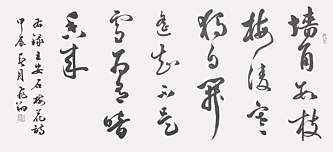 墙角数枝
梅凌寒
独自开
遥知不是
雪为有暗
香来
右录王安石梅花诗
甲辰